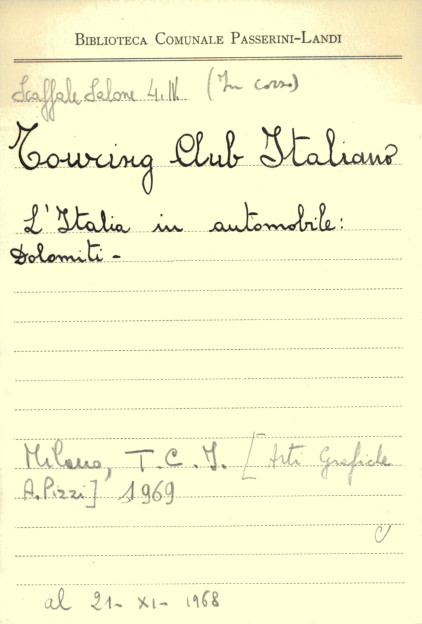 BIBLIOTECA COMUNALE PASSERINI-LANDI
Scaffale Salone 4. IV. (In corso)
Touring Club Italiano
L'Italia in automobile:
Dolomiti -
Milano, T. C. I. [Arti Grafiche
A. Pizzi] 1969
al 21- XI- 1968